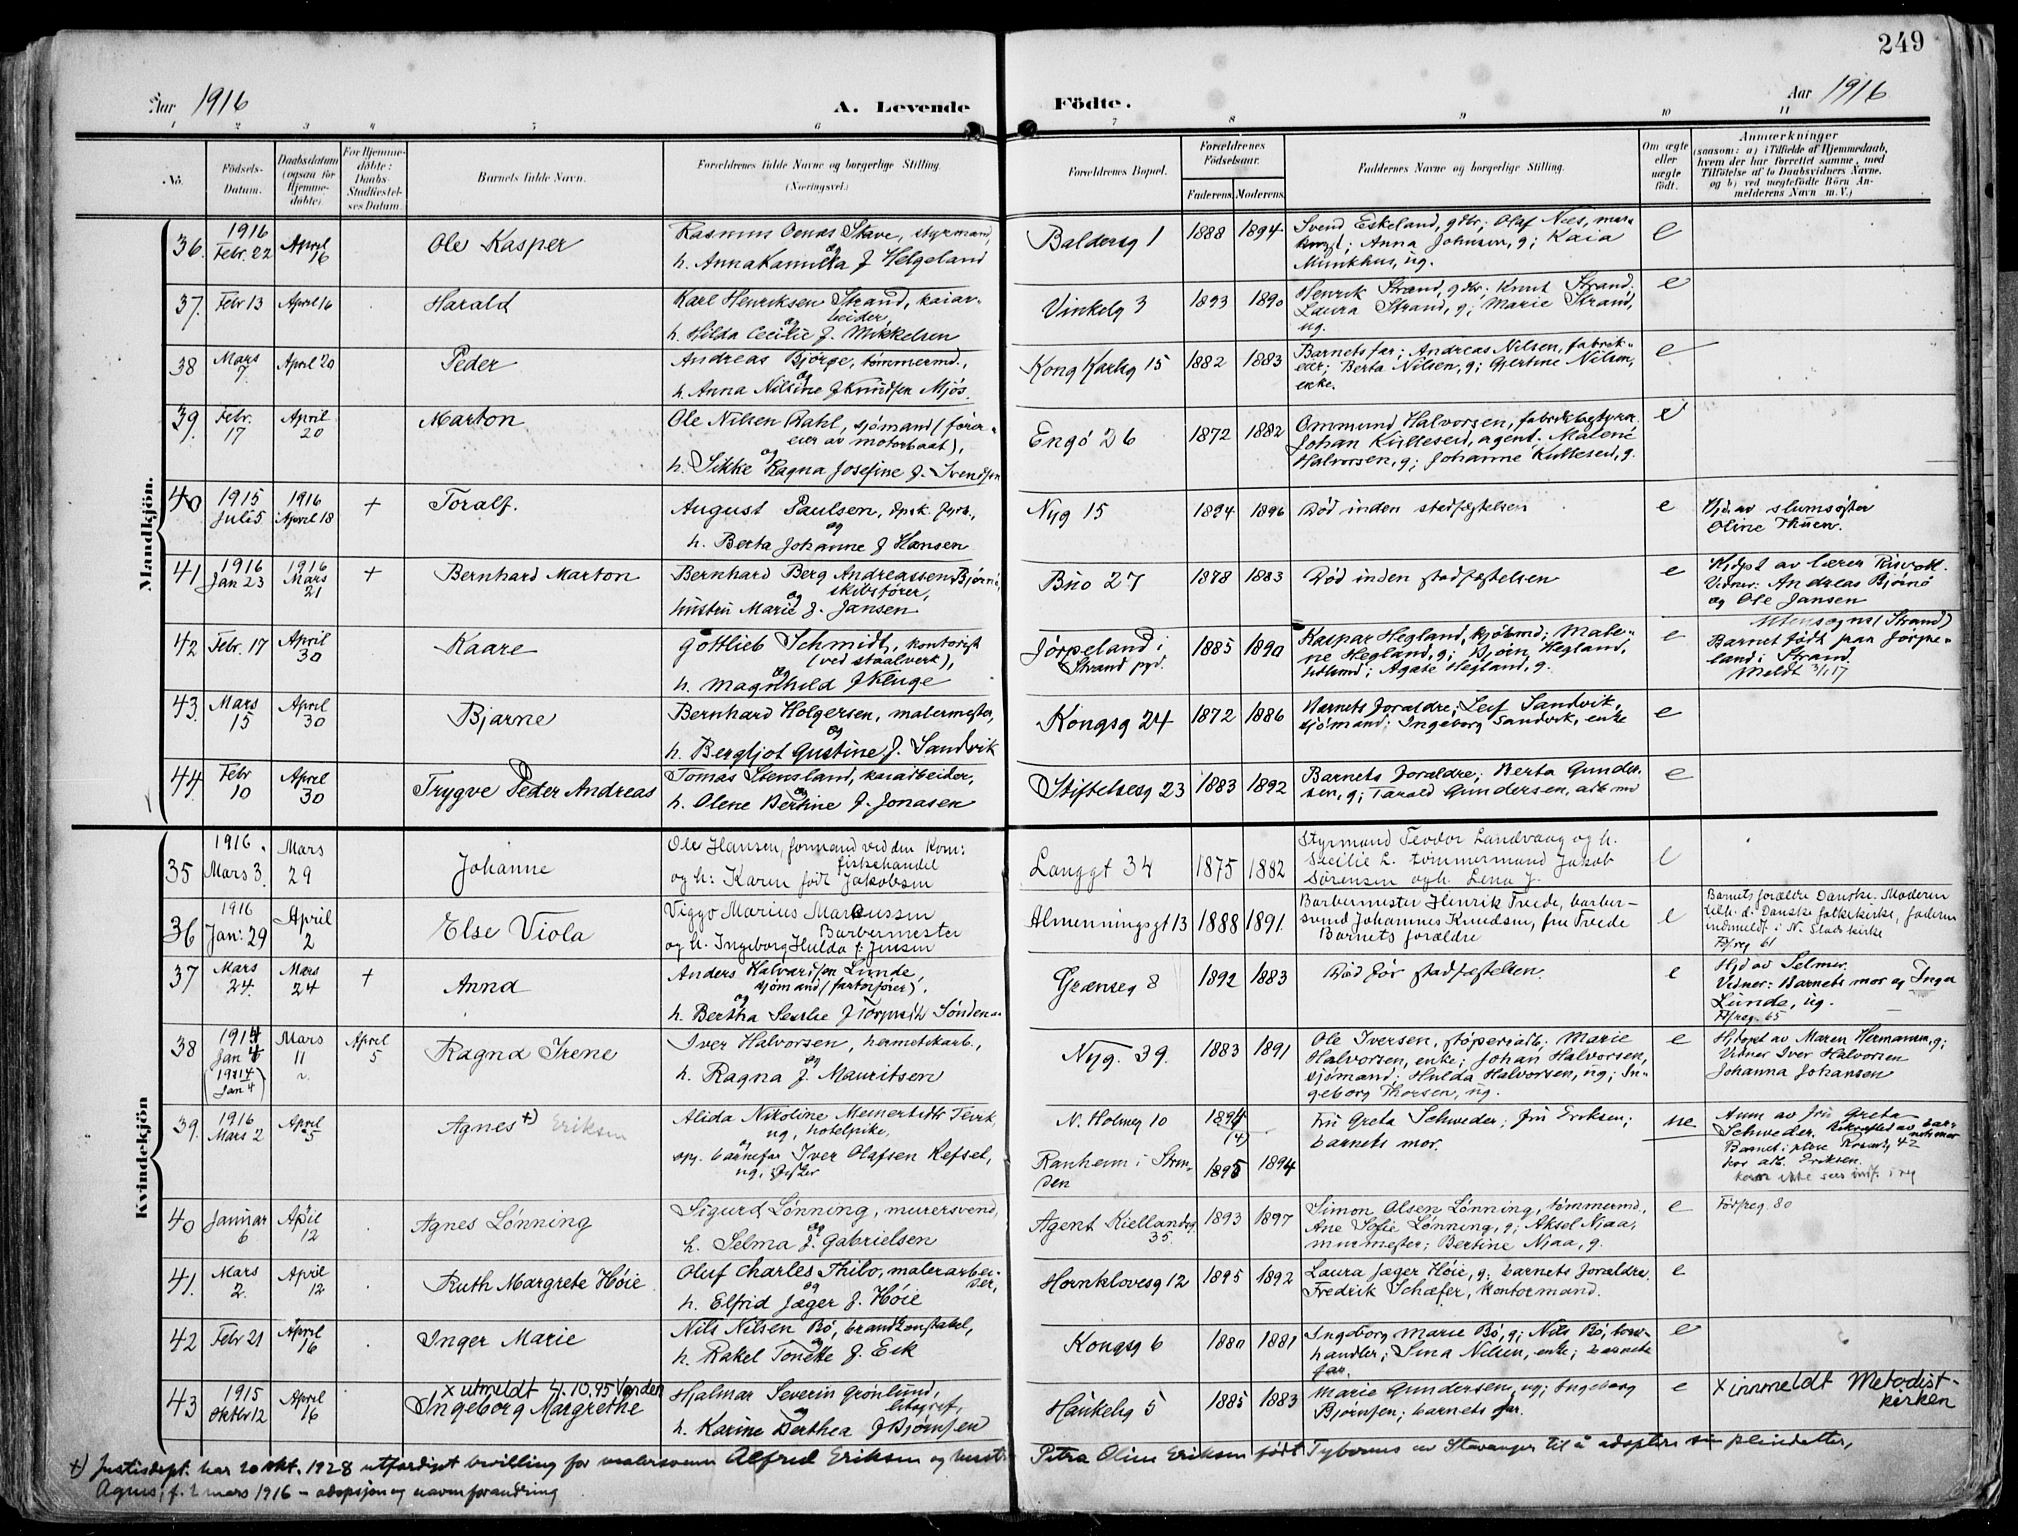 249
Aar 1916
A. Levende
Födte.
Aar 1916
1 2 3 4 5 6 7 8 9 10 11
No.
Födsels-
Datum.
Daabsdatum
(ogsaa for
Hjemme-
døbte).
For Hjemme-
döbte:
Daabs-
Stadfæstel-
ses Datum.
Barnets fulde Navn.
Forældrenes fulde Navne og borgerlige Stilling.
(Næringsvei.)
Forældrenes Bopæl.
Forældrenes
Födselsaar.
Faderens. Moderens.
Faddernes Navne og borgerlige Stilling.
Om ægte
eller
uægte
født.
Anmærkninger
(saasom: a) i Tilfælde af Hjemmedaab,
hvem der har forrettet samme, med
Tilföielse af to Daabsvidners Navne,
og b) ved uægtefödte Börn An-
melderens Navn m. V.)
Mandkjön.
36. 1916 Febr. 22 April 16 Ole Kasper
Rasmus Skave, styrmand,
og
h. Anna Kamilla f Helgeland
Baldersg 1 1888 1894
Svend Eskeland, gdbr; Olaf Næs,
Anna Johnsen, g; Kaia
Munkhus, ug.
e
37. Febr 13 April 16 Harald
Karl Henriksen Strand, kaiar-
beider,
og
h. Hilda Cecilie f. Mikkelsen
Vinkelg 3 1893 1890
Henrik Strand, gdbr. Knut Strand.
Laura Strand, g; Marie Strand,
ug.
e
38 Mars 7. April 20 Peder
Andreas Bjørge, tømmermd.,
og
h. Anna Nilsine f Knudsen Mjøs.
Kong Karlsg 15 1882 1883
Barnets far; Andreas Nilsen, fabrik-
eier; Berta Nilsen, g; Gjertine Nilsen,
enke.
e
39. Febr. 17 April 20 Marton
Ole Nilsen Dahl, sjømand (fører-
eier av motorbaat),
og
h. Sikke Ragna Josefine f. Svendsen
Engö 26 1872 1882
Ommund Halvorsen, fabrikbestyrer
Johan Kulleseid, agent. Malene
Halvorsen, g; Johanne Kulleseid, g.
e
40 1915 Juli 5 1916 April 18 + Toralf.
August Paulsen,
og
h. Berta Johanne f Hansen
Nyg 15 1894 1896
Død inden stadfæstelsen
e
Hjd. av slumsøster
Oline Thuen.
41 1916 Jan 23 1916 Mars 21 + Bernhard Marton
Bernhard Berg Andreassen Bjørnø,
skibsfører,
og
hustru Marie f. Jansen
Buo 27 1878 1883
Død inden stadfæstelsen
e
Hjdpt av lærer Risvoll.
Vidner: Andreas Bjørnø
og Ole Jansen
42 Febr. 17 April 30 Kaare
Gottlieb Schmidt, kontorist
(ved staalverk),
og
h. Magnhild f Kluge
Jørpeland i
Strand pgd. 1885 1890
Kaspar Hegland, kjøbmd; Male-
ne Hegland, g; Bjørn Hegland,
Agate Hegland, g.
e
Utensogns (Strand)
Barnet født paa Jørpe-
land i Strand.
Meldt 3/1 17
43. Mars 15 April 30 Bjarne
Bernhard Holgersen, malermester,
og
h. Bergljot Gustine f. Sandvik
Kongsg 24 1872 1886
Barnets forældre; Leif Sandvik,
sjømand; Ingeborg Sandvik, enke
e
44. Febr 10 April 30 Trygve Peder Andreas
Tomas Stensland, kaiarbeider,
og
h. Olene Bertine f. Jonasen
Stiftelsesg 23 1883 1892
Barnets forældre; Berta Gunder-
sen, g; Tarald Gundersen, arb md
e
Kvindekjön
35 1916. Mars 3. Mars 29 Johanne
Ole Hansen, formand ved den Kom:
fiskehandel
og h: Karen født Jakobsen
Langgt 34 1875 1882
Styrmand Teodor Landvaag og h.
Secilie L. tømmermand Jakob
Sørensen og h. Lena J.
e
36 1916 Jan: 29 April 2 Else Viola
Viggo Marius Markussen
Barbermester
og h. Ingeborg Hulda f: Jensen
Almenningsgt 13 1888 1891
Barbermester Henrik Trede, barber-
svend Johannes Knudsen, fru Trede
Barnets forældre
e
Barnets forældre Danske. Moderen
tilh. d. Danske folkekirke, faderen
indmeldt i N. Statskirke
Fsreg 61
37 Mars 24. Mars 24 + Anna
Anders Halvardsen Lunde,
sjømand (fartøifører),
og
h. Bertha Serine f Torpvik Sønden
Grænseg 8 1892 1883
Død før stadfæstelsen.
e
Hjd av Selmer.
Vidner: Barnets mor og Inga
Lunde, ug.
Fsreg. 65
38 1914 Jan 4 (1914 Jan 4) Mars 11 April 5 Ragna Irene
Iver Halvorsen, hermetikarb.,
og
h. Ragna f. Mauritsen
Nyg. 39. 1883 1891
Ole Iversen, støperiarb; Marie
Halvorsen, enke; Johan Halvorsen,
sjømand; Hulda Halvorsen, ug; In-
geborg Thorsen, ug.
e
Hjdøpt av Maren Hermansen, g;
Vidner Iver Halvorsen
Johanna Johansen
39. 1916 Mars 2 April 5 Agnes +) Eriksen
Alida Nikoline
ug, hotelpike,
og
opg. barnefar Iver Olafsen Refsel,
ug,
N. Holmeg 10 1894
Ranheim i Strin-
den 1895 1894
Fru Greta Schweder; fru Eriksen;
barnets mor.
ue
Anm av fru Greta
Schweder. Bekræftet av bar-
nets mor
Barnet i pleie 42
hos arb. Eriksen.
40 Januar 6 April 12 Agnes Lønning
Sigurd Lønning, murersvend,
og
h. Selma f. Gabrielsen
Agent Kiellandsg.
35. 1893 1897
Simon Olsen Lønning, tømmermd,
Ane Sofie Lønning, g; Aksel Njaa,
murmester; Bertine Njaa, g.
e
Førsreg. 80
41. Mars 2. April 12 Ruth Margrete Høie
Oluf Charles Thilo, malerarbei-
der,
og
h. Elfrid Jæger f. Høie
Hornklovesg 12 1895 1892
Laura Jæger Høie, g; barnets forældre,
Fredrik Schæfer, kontormand.
e
42 Febr 21 April 16 Inger Marie
Nils Nilsen Bø, brandkonstabel,
og
h. Rakel Tonette f. Eik
Kongsg 6 1880 1881
Ingeborg Marie Bø, g; Nils Bø,
handler; Sina Nilsen, enke; barnets
far.
e
43 1915 Oktbr 12 April 16 x utmeldt 4.10.95
Ingeborg Margrethe
Hjalmar Severin Grønlund,
litograf,
og
h. Karine Berthea f Bjørnsen
Haukelig 5 1885 1883
Marie Gundersen, ug; Ingeborg
Bjørnsen; barnets far.
e
x innmeldt Metodist-
kirken
+) Justisdept. har 20 okt. 1928 utferdiget bevilling for malersvenn Alfred Eriksen og hustru Petra Oline Eriksen født av Stavanger til å adoptere sin pleiedatter,
Agnes, f. 2 mars 1916 – adopsjon og navneforandring